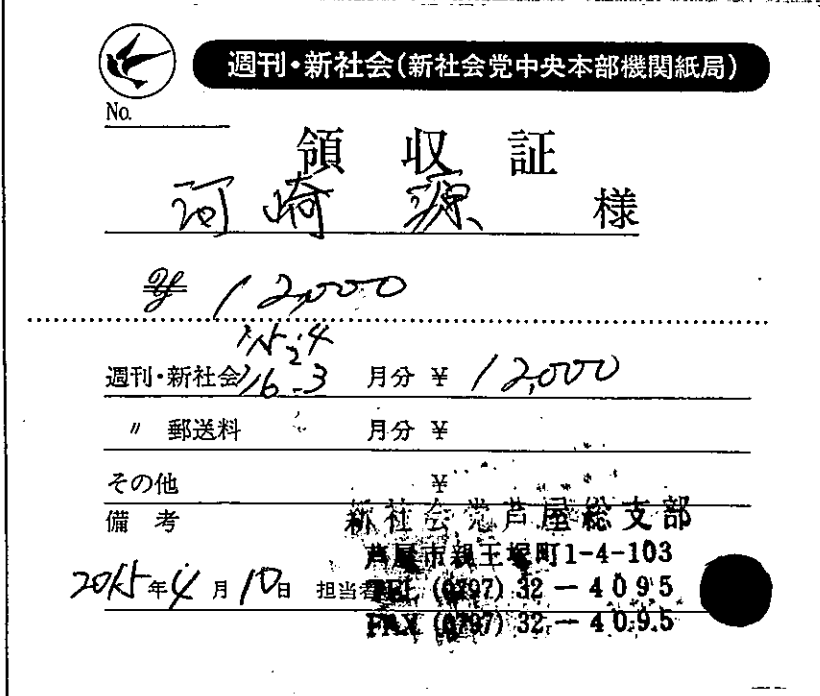 週刊・新社会(新社会党中央本部機関紙局)
No.
領収証
河崎 源 様
¥ 12,000
'15.4
週刊・新社会 '16-3 月分 ¥ 12,000
〃 郵送料 月分 ¥
その他 ¥
備考
新社会党芦屋総支部
芦屋市親王塚町1-4-103
2015年4月10日 担当者
TEL (0797) 32-4095
FAX (0797) 32-4095